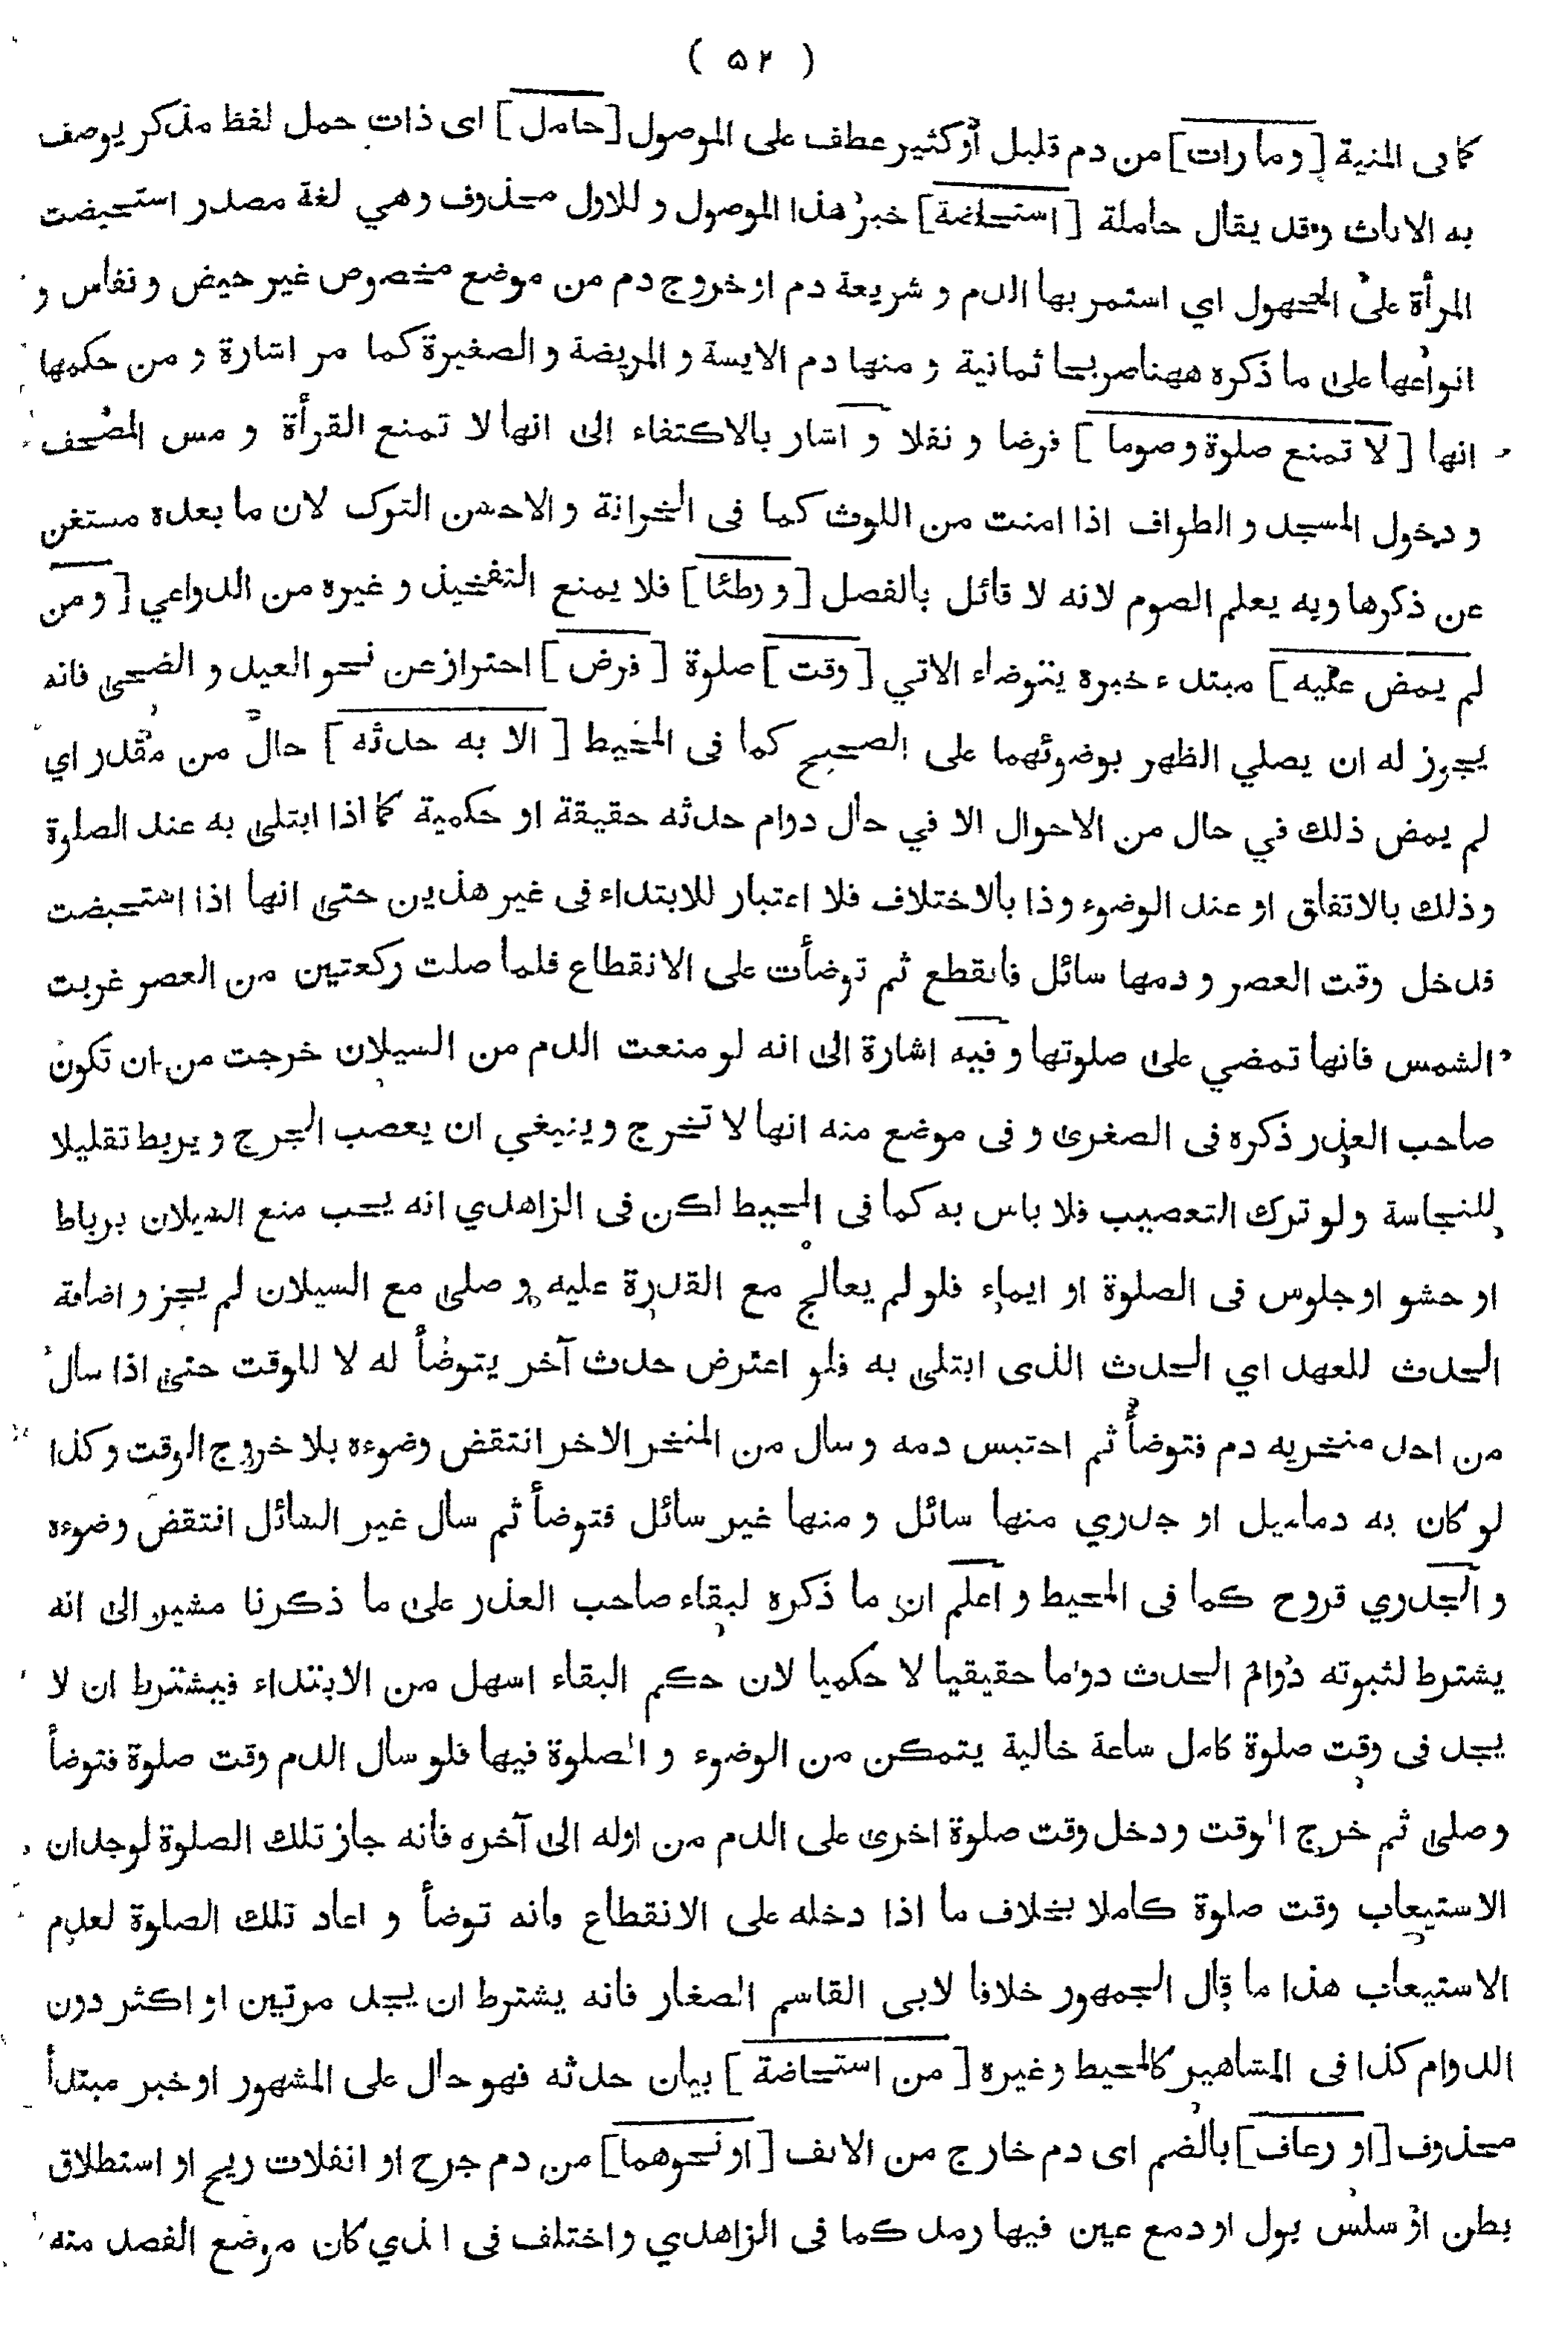 ( ۵۲ )
كما فى المنية [ وما رات ] من دم قليل أو كثير عطف على الموصول [ حامل ] اى ذات حمل لفظ مذكر يوصف
به الاناث وقد يقال حاملة [ استحاضة ] خبر هذا الموصول و للاول محذوف وهي لغة مصدر استحيضت
المرأة على المجهول اي استمر بها الدم و شريعة دم او خروج دم من موضع مخصوص غير حيض و نفاس و
انواعها على ما ذكره ههنا صريحا ثمانية و منها دم الايسة و المريضة و الصغيرة كما مر اشارة و من حكمها
انها [ لا تمنع صلوة وصوما ] فرضا و نفلا و اشار بالاكتفاء الى انها لا تمنع القرأة و مس المصحف
و دخول المسجد و الطواف اذا امنت من اللوث كما فى الخزانة و الاحسن الترك لان ما بعده مستغن
عن ذكرها وبه يعلم الصوم لانه لا قائل بالفصل [ و وطئا ] فلا يمنع التفخيذ و غيره من الدواعي [ ومن
لم يمض عليه ] مبتدء خبره يتوضاء الاتي [ وقت ] صلوة [ فرض ] احتراز عن نحو العيد و الضحى فانه
يجوز له ان يصلي الظهر بوضوئهما على الصحيح كما فى المحيط [ الا به حدثه ] حال من مقدر اي
لم يمض ذلك في حال من الاحوال الا في حال دوام حدثه حقيقة او حكمية كما اذا ابتلى به عند الصلوة
وذلك بالاتفاق او عند الوضوء وذا بالاختلاف فلا اعتبار للابتداء فى غير هذين حتى انها اذا استحيضت
فدخل وقت العصر و دمها سائل فانقطع ثم توضأت على الانقطاع فلما صلت ركعتين من العصر غربت
الشمس فانها تمضي على صلوتها و فيه اشارة الى انه لو منعت الدم من السيلان خرجت من ان تكون
صاحب العذر ذكره فى الصغرى و فى موضع منه انها لا تخرج وينبغي ان يعصب الجرح و يربط تقليلا
للنجاسة ولو ترك التعصيب فلا باس به كما فى المحيط لكن فى الزاهدي انه يجب منع السيلان برباط
او حشو او جلوس فى الصلوة او ايماء فلو لم يعالج مع القدرة عليه و صلى مع السيلان لم يجز و اضافة
الحدث للعهد اي الحدث الذى ابتلى به فلو اعترض حدث آخر يتوضأ له لا للوقت حتى اذا سال
من احد منخريه دم فتوضأ ثم احتبس دمه و سال من المنخر الاخر انتقض وضوءه بلا خروج الوقت وكذا
لو كان به دماميل او جدري منها سائل و منها غير سائل فتوضأ ثم سال غير السائل انتقض وضوءه
و الجدري قروح كما فى المحيط و اعلم ان ما ذكره لبقاء صاحب العذر على ما ذكرنا مشير الى انه
يشترط لثبوته دوام الحدث دوما حقيقيا لا حكميا لان حكم البقاء اسهل من الابتداء فيشترط ان لا
يجد فى وقت صلوة كامل ساعة خالية يتمكن من الوضوء و الصلوة فيها فلو سال الدم وقت صلوة فتوضأ
وصلى ثم خرج الوقت ودخل وقت صلوة اخرى على الدم من اوله الى آخره فانه جاز تلك الصلوة لوجدان
الاستيعاب وقت صلوة كاملا بخلاف ما اذا دخله على الانقطاع فانه توضأ و اعاد تلك الصلوة لعدم
الاستيعاب هذا ما قال الجمهور خلافا لابى القاسم الصغار فانه يشترط ان يجد مرتين او اكثر دون
الدوام كذا فى المشاهير كالمحيط وغيره [ من استحاضة ] بيان حدثه فهو حال على المشهور او خبر مبتدأ
محذوف [ او رعاف ] بالضم اى دم خارج من الانف [ او نحوهما ] من دم جرح او انفلات ريح او استطلاق
بطن او سلس بول او دمع عين فيها رمد كما فى الزاهدي و اختلف فى الذي كان موضع الفصد منه